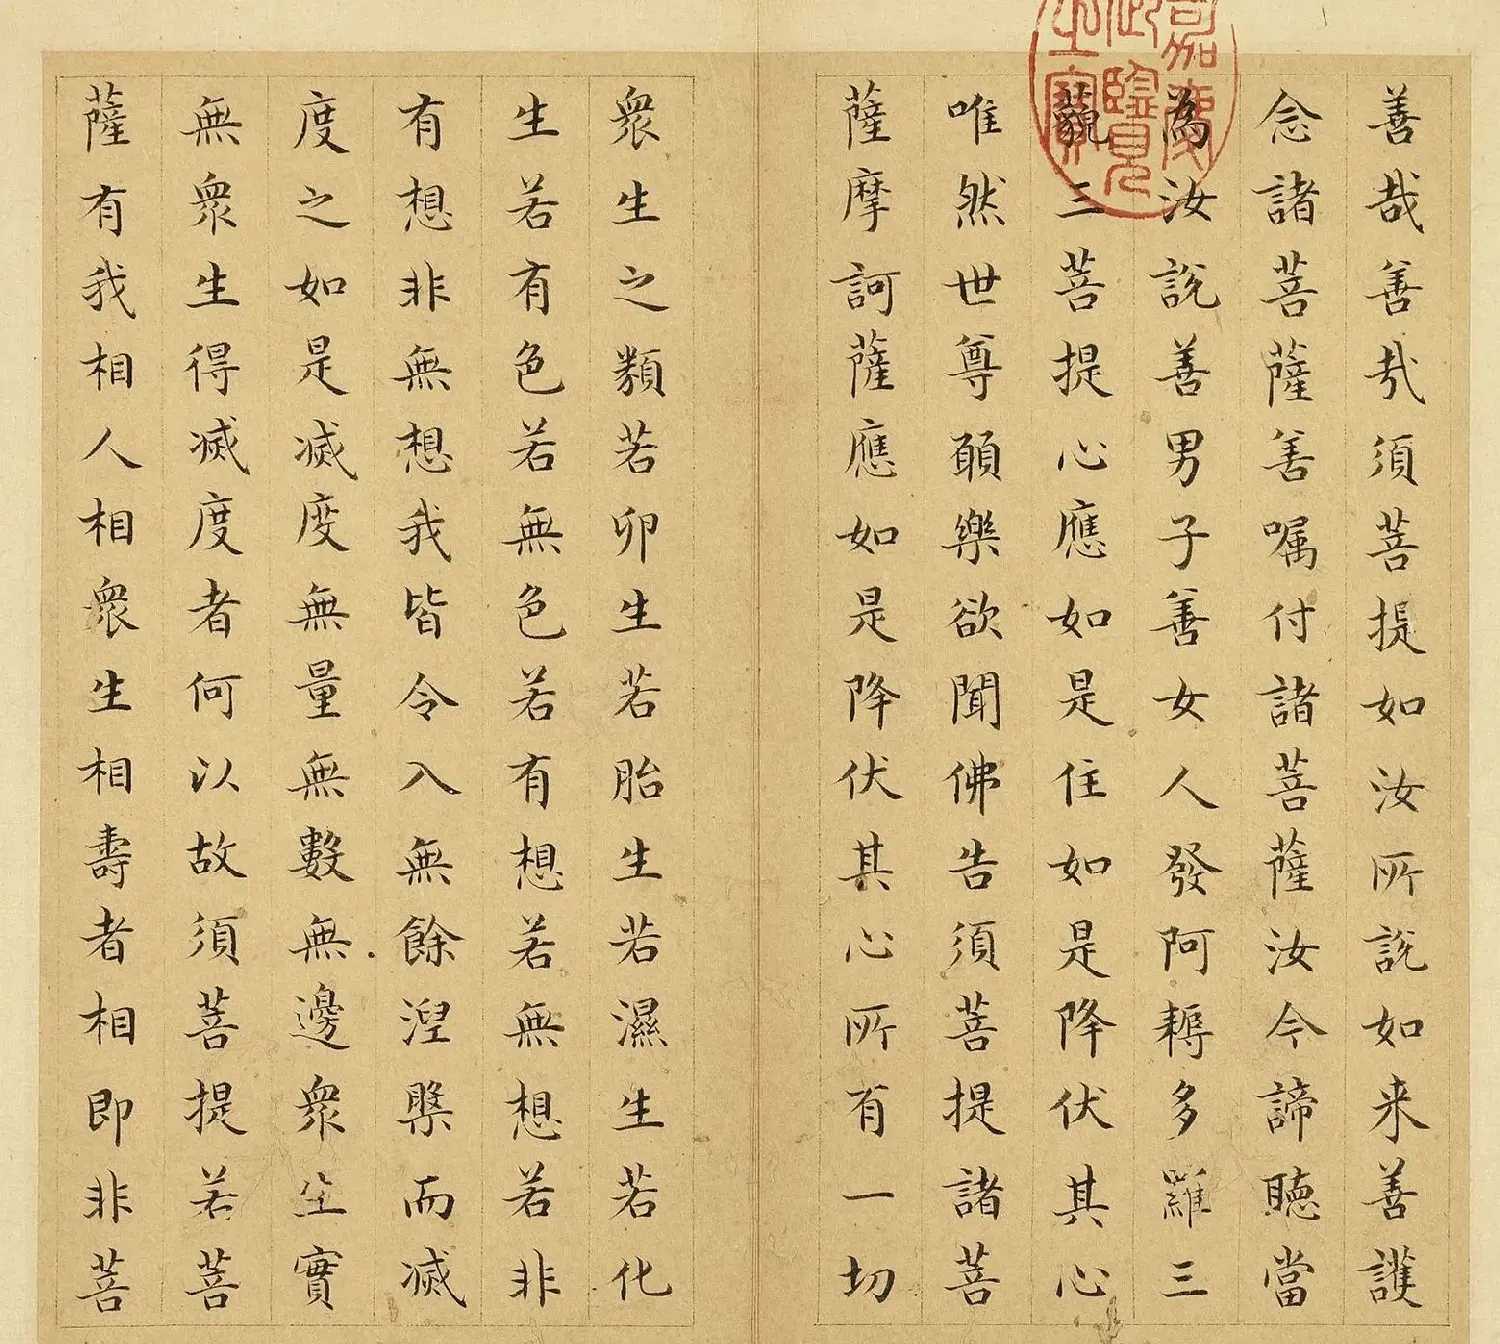 善哉善哉須菩提如汝所說如来善護
念諸菩薩善嘱付諸菩薩汝今諦聽當
為汝說善男子善女人發阿耨多羅三
藐三菩提心應如是住如是降伏其心
唯然世尊願樂欲聞佛告須菩提諸菩
薩摩訶薩應如是降伏其心所有一切
衆生之類若卵生若胎生若濕生若化
生若有色若無色若有想若無想若非
有想非無想我皆令入無餘涅槃而滅
度之如是滅度無量無數無邊衆生實
無衆生得滅度者何以故須菩提若菩
薩有我相人相衆生相壽者相即非菩
嘉慶御覽之寶